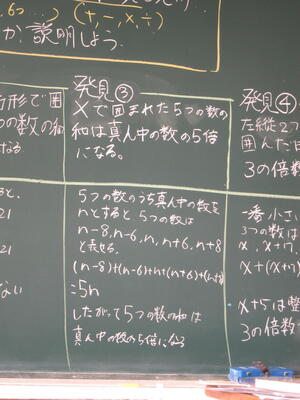 (+, -, ×, ÷)
か説明しよう。
形で囲
つの数の和
なる
発見③
Xで囲まれた5つの数の
和は真ん中の数の5倍
になる。
発見④
左縦2つ
囲んだ
3の倍数
5つの数のうち真ん中の数を
nとすると5つの数は
n-8, n-6, n, n+6, n+8
と表せる
(n-8)+(n-6)+n+(n+6)+(n+8)
=5n
したがって5つの数の和は
真ん中の数の5倍になる
と、
21
21
ない
一番小さい
3つの数は
x, x+7,
x+(x+7)
x+5は整
3の倍数